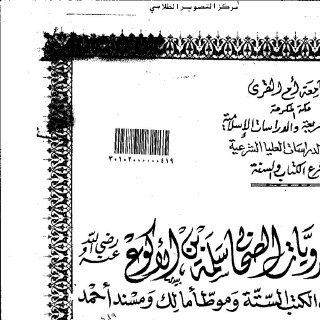 مركز التصوير الطلابي
معة أم القرى
مكة المكرمة
ريعة والدراسات الإسلامية
لدراسات العليا الشرعية
رع الكتاب والسنة
٣٠١٠٢٠٠٠٠٠٠٤١٩
رويات الصحابي سلمة بن الأكوع رضي الله عنه
الكتب الستة وموطأ مالك ومسند أحمد